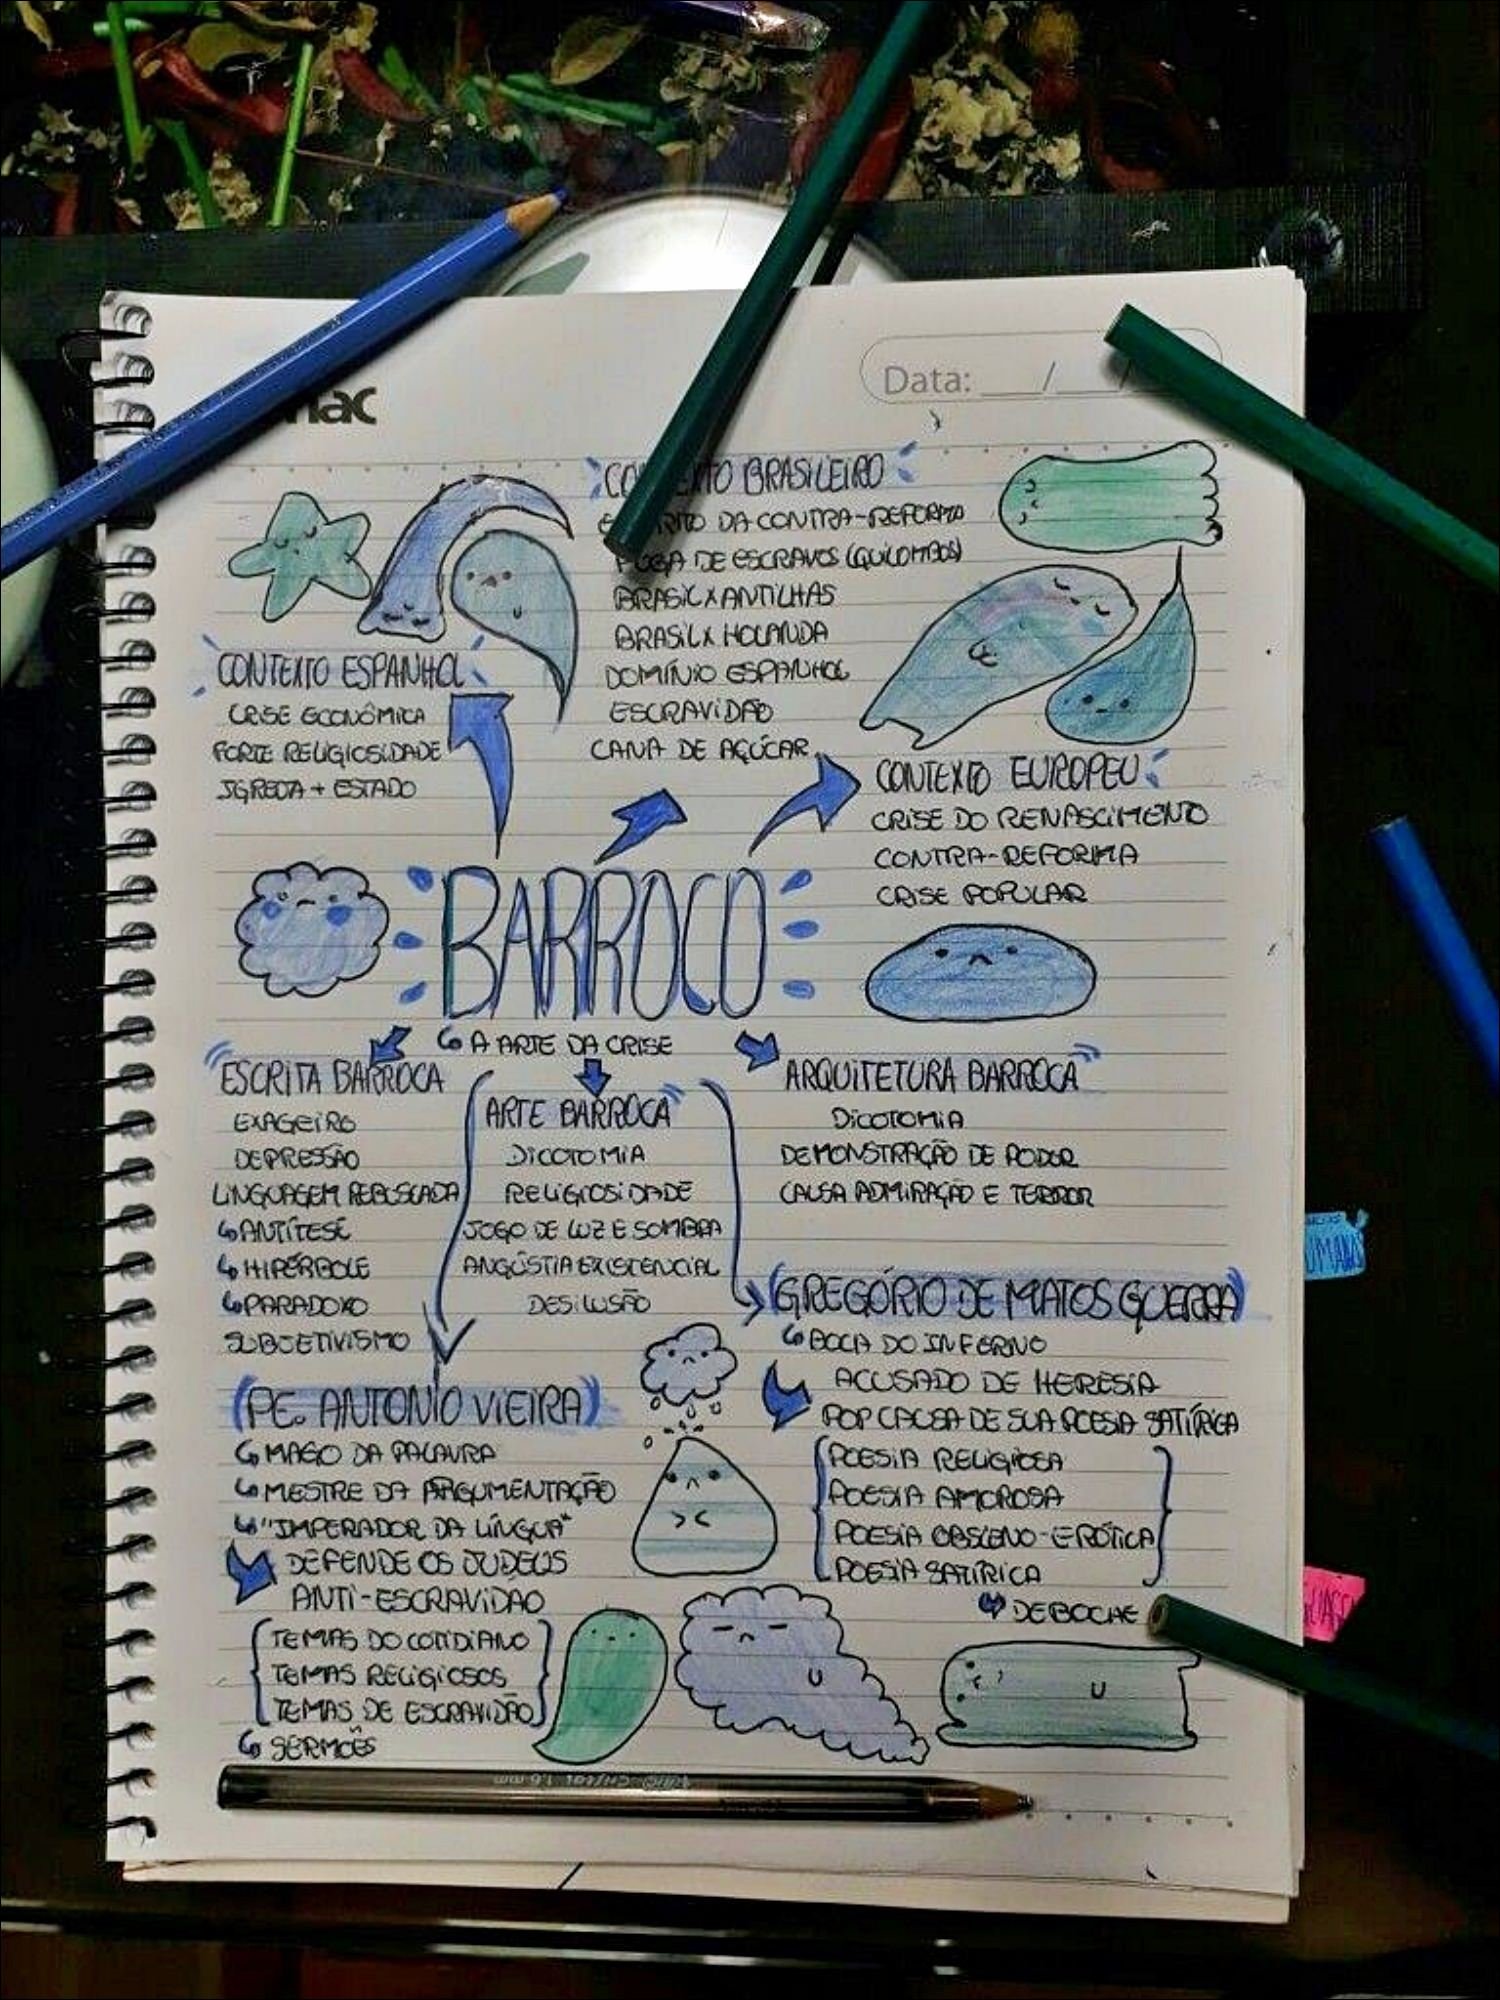 Data: __/__/
nac
CONTEXTO BRASILEIRO
ESPÍRITO DA CONTRA-REFORMA
FUGA DE ESCRAVOS (QUILOMBOS)
BRASIL X ANTILHAS
BRASIL X HOLANDA
DOMÍNIO ESPANHOL
ESCRAVIDÃO
CANA DE AÇÚCAR
CONTEXTO ESPANHOL
CRISE ECONÔMICA
FORTE RELIGIOSIDADE
IGREJA + ESTADO
CONTEXTO EUROPEU
CRISE DO RENASCIMENTO
CONTRA-REFORMA
CRISE POPULAR
BARROCO
A ARTE DA CRISE
ESCRITA BARROCA
EXAGEIRO
DEPRESSÃO
LINGUAGEM REBUSCADA
ANTÍTESE
HIPÉRBOLE
PARADOXO
SUBJETIVISMO
ARTE BARROCA
DICOTOMIA
RELIGIOSIDADE
JOGO DE LUZ E SOMBRA
ANGÚSTIA EXISTENCIAL
DESILUSÃO
ARQUITETURA BARROCA
DICOTOMIA
DEMONSTRAÇÃO DE PODER
CAUSA ADMIRAÇÃO E TERROR
(GREGÓRIO DE MATOS GUERRA)
BOCA DO INFERNO
ACUSADO DE HERESIA
POR CAUSA DE SUA POESIA SATÍRICA
POESIA RELIGIOSA
POESIA AMOROSA
POESIA OBSCENO-ERÓTICA
POESIA SATÍRICA
DEBOCHE
(PE. ANTONIO VIEIRA)
MAGO DA PALAVRA
MESTRE DA ARGUMENTAÇÃO
"IMPERADOR DA LÍNGUA"
DEFENDE OS JUDEUS
ANTI-ESCRAVIDÃO
TEMAS DO COTIDIANO
TEMAS RELIGIOSOS
TEMAS DE ESCRAVIDÃO
SERMÕES